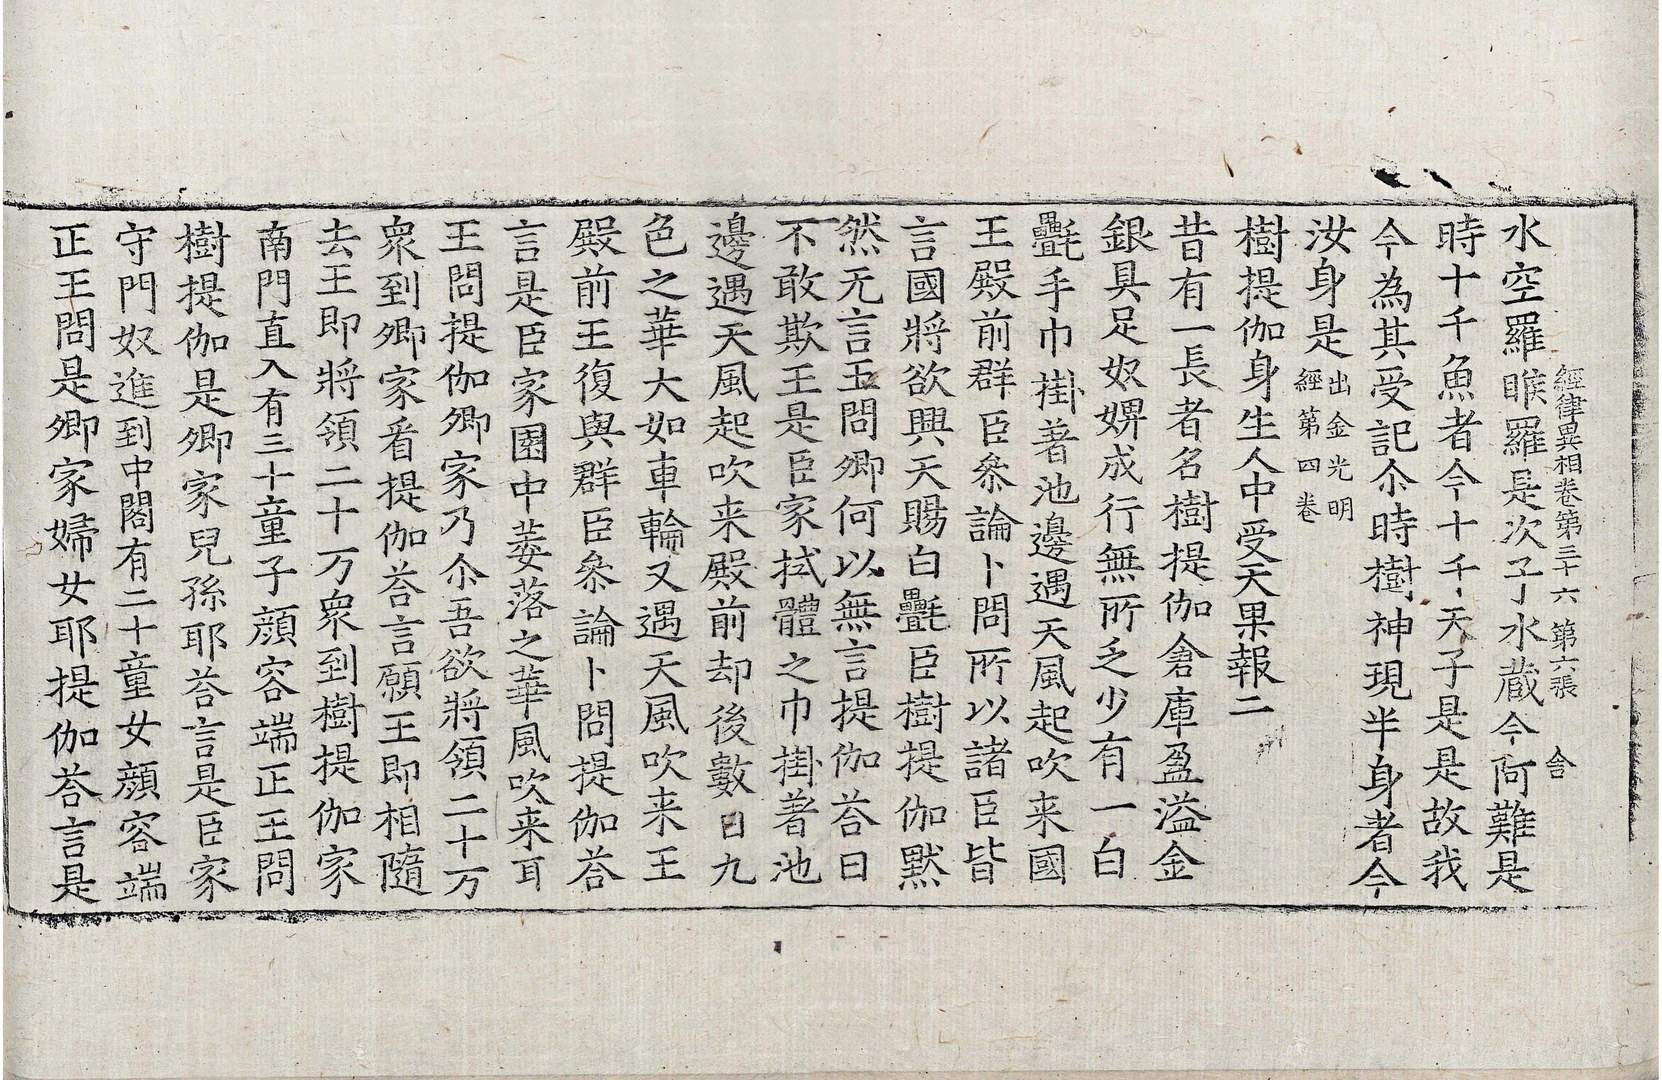 經律異相卷第三十六 第六張 舍
水空羅睺羅是次子水藏今阿難是
時十千魚者今十千天子是是故我
今為其受記尒時樹神現半身者今
汝身是出金光明經第四卷
樹提伽身生人中受天果報二
昔有一長者名樹提伽倉庫盈溢金
銀具足奴婢成行無所乏少有一白
㲲手巾掛著池邊遇天風起吹来國
王殿前群臣叅論卜問所以諸臣皆
言國將欲興天賜白㲲臣樹提伽黙
然无言王問卿何以無言提伽荅曰
不敢欺王是臣家拭體之巾掛著池
邊遇天風起吹来殿前却後數日九
色之華大如車輪又遇天風吹来王
殿前王復與群臣叅論卜問提伽荅
言是臣家園中萎落之華風吹来耳
王問提伽卿家乃尒吾欲將領二十万
衆到卿家看提伽荅言願王即相隨
去王即將領二十万衆到樹提伽家
南門直入有三十童子顔容端正王問
樹提伽是卿家兒孫耶荅言是臣家
守門奴進到中閤有二十童女顔容端
正王問是卿家婦女耶提伽荅言是